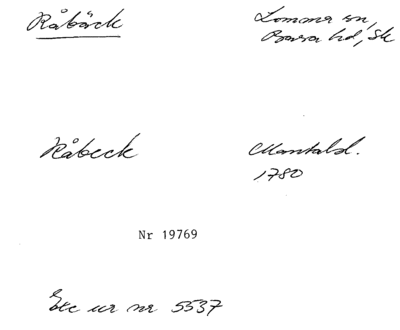 Råbäck
Lomma sn,
Bara hd, Sk
Råbeck
Mantalsl.
1780
Nr 19769
Exc ur nr 5537